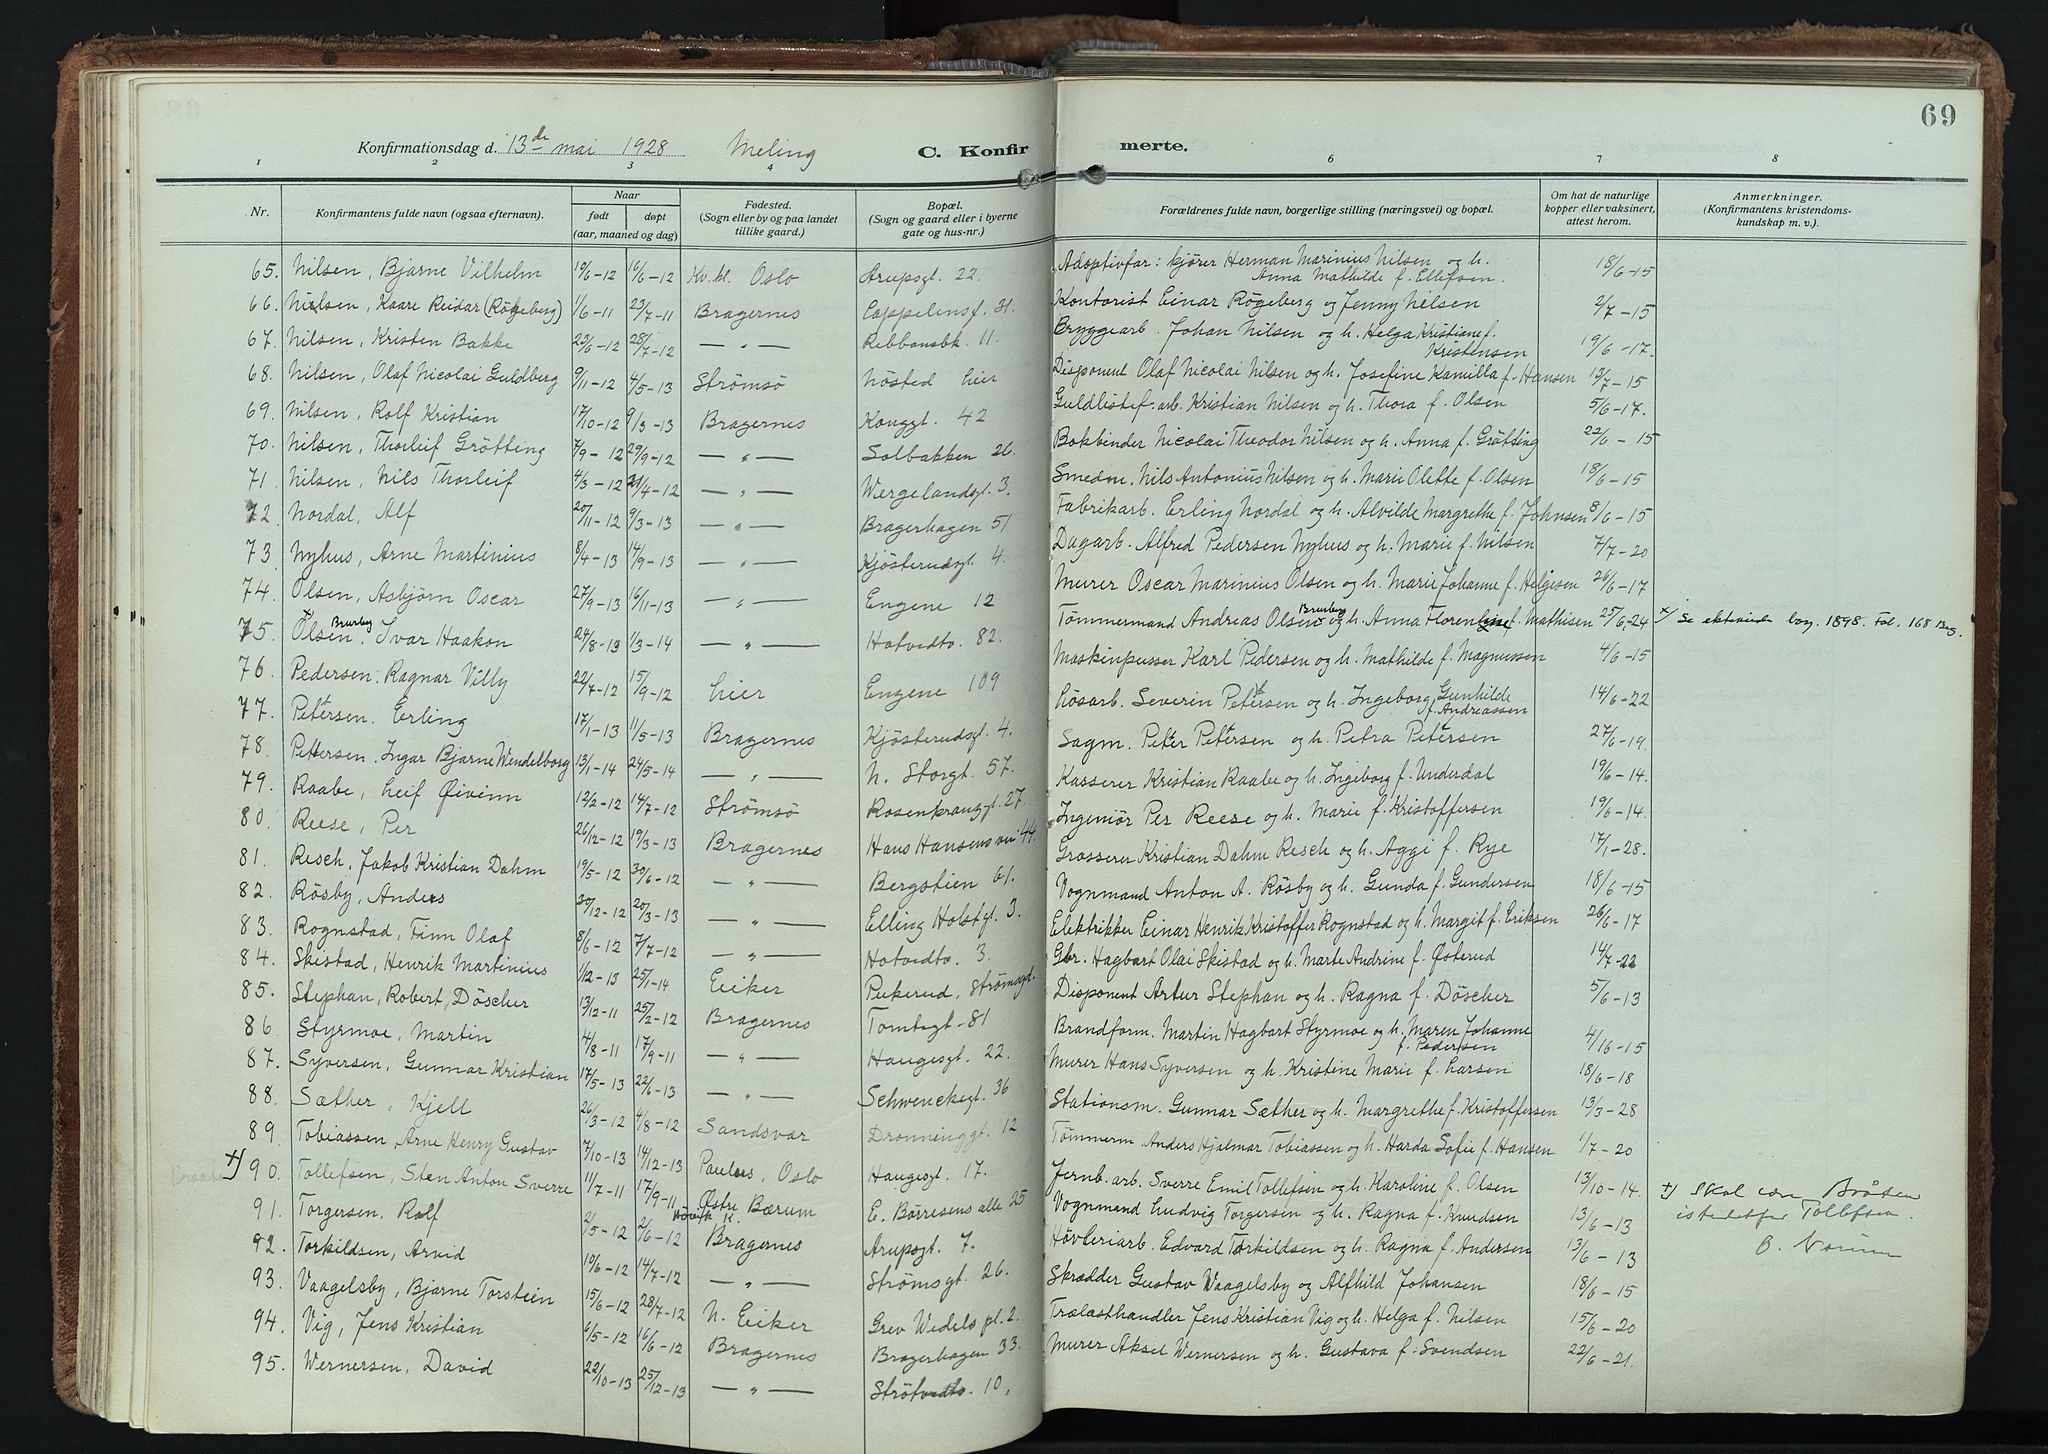 69
Konfirmationsdag d. 13de mai 1928 Meling C. Konfirmerte.
1 2 3 4 6 7 8
Nr. Konfirmantens fulde navn (ogsaa efternavn). Naar født døpt (aar, maaned og dag) Fødested. (Sogn eller by og paa landet tillike gaard.) Bopæl. (Sogn og gaard eller i byerne gate og hus-nr.) Forældrenes fulde navn, borgerlige stilling (næringsvei) og bopæl. Om hat de naturlige kopper eller vaksinert, attest herom. Anmerkninger. (Konfirmantens kristendoms-kundskap m. v.).
65. Nilsen, Bjarne Vilhelm 19/6-12 16/6-12 Kv. kl. Oslo Arupsgt 22. Adoptivfar: kjører Herman Marinius Nilsen og h. Anna Mathilde f. Ellefsen. 18/6-15
66. Nielsen, Kaare Reidar (Rögeberg) 1/6-11 23/7-11 Bragernes Cappelensf. 21. Kontorist Einar Rögeberg og Jenny Nilsen 2/7-15
67. Nilsen, Kristen Bakke 23/6-12 28/7-12 — " — Ribbansbk. 11. Bryggearb. Johan Nilsen og h. Helga Kristiane f. Kristensen 19/6-17.
68. Nilsen, Olaf Nicolai Guldberg 9/11-12 4/5-13 Strömsö Nösted Lier Disponent Olaf Nicolai Nilsen og h. Josefine Kamilla f. Hansen 13/7-15
69. Nilsen, Rolf Kristian 17/10-12 9/3-13 Bragernes Konggt. 42 Guldlistef. arb. Kristian Nilsen og h. Thora f. Olsen 5/6-17.
70. Nilsen, Thorleif Grötting 7/9-12 29/9-12 — " — Solbakken 26. Bokbinder Nicolai Theodor Nilsen og h. Anna f. Grötting 22/6-15
71. Nilsen, Nils Thorleif 4/3-12 21/4-12 — " — Wergelandsgt. 3. Smedm. Nils Antonius Nilsen og h. Marie Olette f. Olsen 18/6-15
72 Nordal, Alf 20/11-12 9/3-13 — " — Bragerhagen 51 Fabrikarb. Erling Nordal og h. Alvilde Margrethe f. Johnsen 8/6-15
73. Nyhus, Arne Martinius 8/4-13 14/9-13 — " — Kjösterudsgt. 4. Dagarb. Alfred Pedersen Nyhus og h. Marie f. Nilsen 7/7-20
74. Olsen, Asbjörn Oscar 27/9-13 16/11-13 — " — Engene 12 Murer Oscar Marinius Olsen og h. Marie Johanne f. Helgesen 26/6-17
75. Olsen Brurby, Ivar Haakon 24/8-13 1/3-14 — " — Hotvedtv. 82. Tömmermand Andreas Olsen Brurby og h. Anna Florentine f. Mathisen 25/6-24 +) Se ektevieде bog. 1898. Fol. 168 Brag.
76. Pedersen. Ragnar Villy 22/7-12 15/9-12 Lier Engene 109 Maskinpusser Karl Pedersen og h. Mathilde f. Magnussen 4/6-15
77. Pettersen. Erling 17/1-13 11/5-13 Bragernes Kjösterudsgt. 4. Lösarb. Severin Pettersen og h. Ingeborg Gunhilde f. Andreassen 14/6-22
78. Pettersen. Ingar Bjarne Wendelborg 13/1-14 24/5-14 — " — N. Storgt. 57. Sagm. Peter Pettersen og h. Petra Pettersen 27/6-19.
79. Raabe, Leif Øivinn 12/2-12 14/7-12 Strömsö Rosenkrantzgt. 27. Kasserer Kristian Raabe og h. Ingeborg f. Underdal 19/6-14.
80. Reese, Per 26/12-12 19/3-13 Bragernes Hans Hansens vei 44. Ingeniör Per Reese og h. Marie f. Kristoffersen 19/6-14
81. Resch, Jakob Kristian Dahm 19/5-12 30/6-12 — " — Bergstien 61. Grosserer Kristian Dahm Resch og h. Aggi f. Rye 17/1-28.
82. Rösby, Anders 29/12-12 20/3-13 — " — Elling Holstgt. 3. Vognmand Anton A. Rösby og h. Gunda f. Gundersen 18/6-15
83. Rognstad, Finn Olaf 8/6-12 7/7-12 — " — Hotvedtv. 3. Elektrikker Einar Henrik Kristoffer Rognstad og h. Margit f. Eriksen 26/6-17
84. Skistad, Henrik Martinius 1/12-13 25/1-14 Eiker Pukerud, Strømsgt. Gbr. Hagbart Olai Skistad og h. Marte Andrine f. Østerud 14/7-22
85. Stephan, Robert, Döscher 13/12-11 25/2-12 Bragernes Tomtegt-81 Disponent Artur Stephan og h. Ragna f. Döscher 5/6-13
86. Styrmoe, Martin 4/8-11 17/9-11 — " — Haugesgt. 22. Brandform. Martin Hagbart Styrmoe og h. Maren Johanne f. Pedersen 4/16-15
87. Syversen, Gunnar Kristian 17/5-13 22/6-13 — " — Schwenckegt. 36 Murer Hans Syversen og h. Kristine Marie f. Larsen 18/6-18
88. Sæther, Kjell 26/3-12 4/8-12 Sandsvær Dronninggt. 12 Stationsm. Gunnar Sæther og h. Margrethe f. Kristoffersen 13/3-28
89. Tobiassen, Arne Henry Gustav 7/10-13 14/12-13 Paulus, Oslo Haugesgt. 17. Tömmerm Anders Hjalmar Tobiassen og h. Harda Sofie f. Hansen 1/7-20
+) 90. Tollefsen, Sten Anton Sverre 11/7-11 17/9-11 Østre Bærum Hövik K. E. Börresens alle 25 Jernb. arb. Sverre Emil Tollefsen og h. Karoline f. Olsen 13/10-14. +) Skal være Bråten istedetfor Tollefsen.
91. Torgersen. Rolf 2/5-12 2/6-12 Bragernes Arupsgt. 7. Vognmand Ludvig Torgersen og h. Ragna f. Knudsen 13/6-13
92. Torkildsen, Arvid 19/6-12 14/7-12 — " — Strömsgt. 26. Hövleriarb. Edvard Torkildsen og h. Ragna f. Andersen 13/6-13
93. Vaagelsby, Bjarne Torstein 15/6-12 28/7-12 N. Eiker Grev Wedels pl. 2. Skrædder Gustav Vaagelsby og Alfhild Johansen 18/6-15
94. Vig, Jens Kristian 6/5-12 16/6-12 Bragernes Bragerhagen 33. Trælasthandler Jens Kristian Vig og h. Helga f. Nilsen 15/6-20
95. Wernersen, David 22/10-13 25/12-13 — " — Strötvedtv. 10, Murer Aksel Wernersen og h. Gustava f. Svendsen 22/6-21.